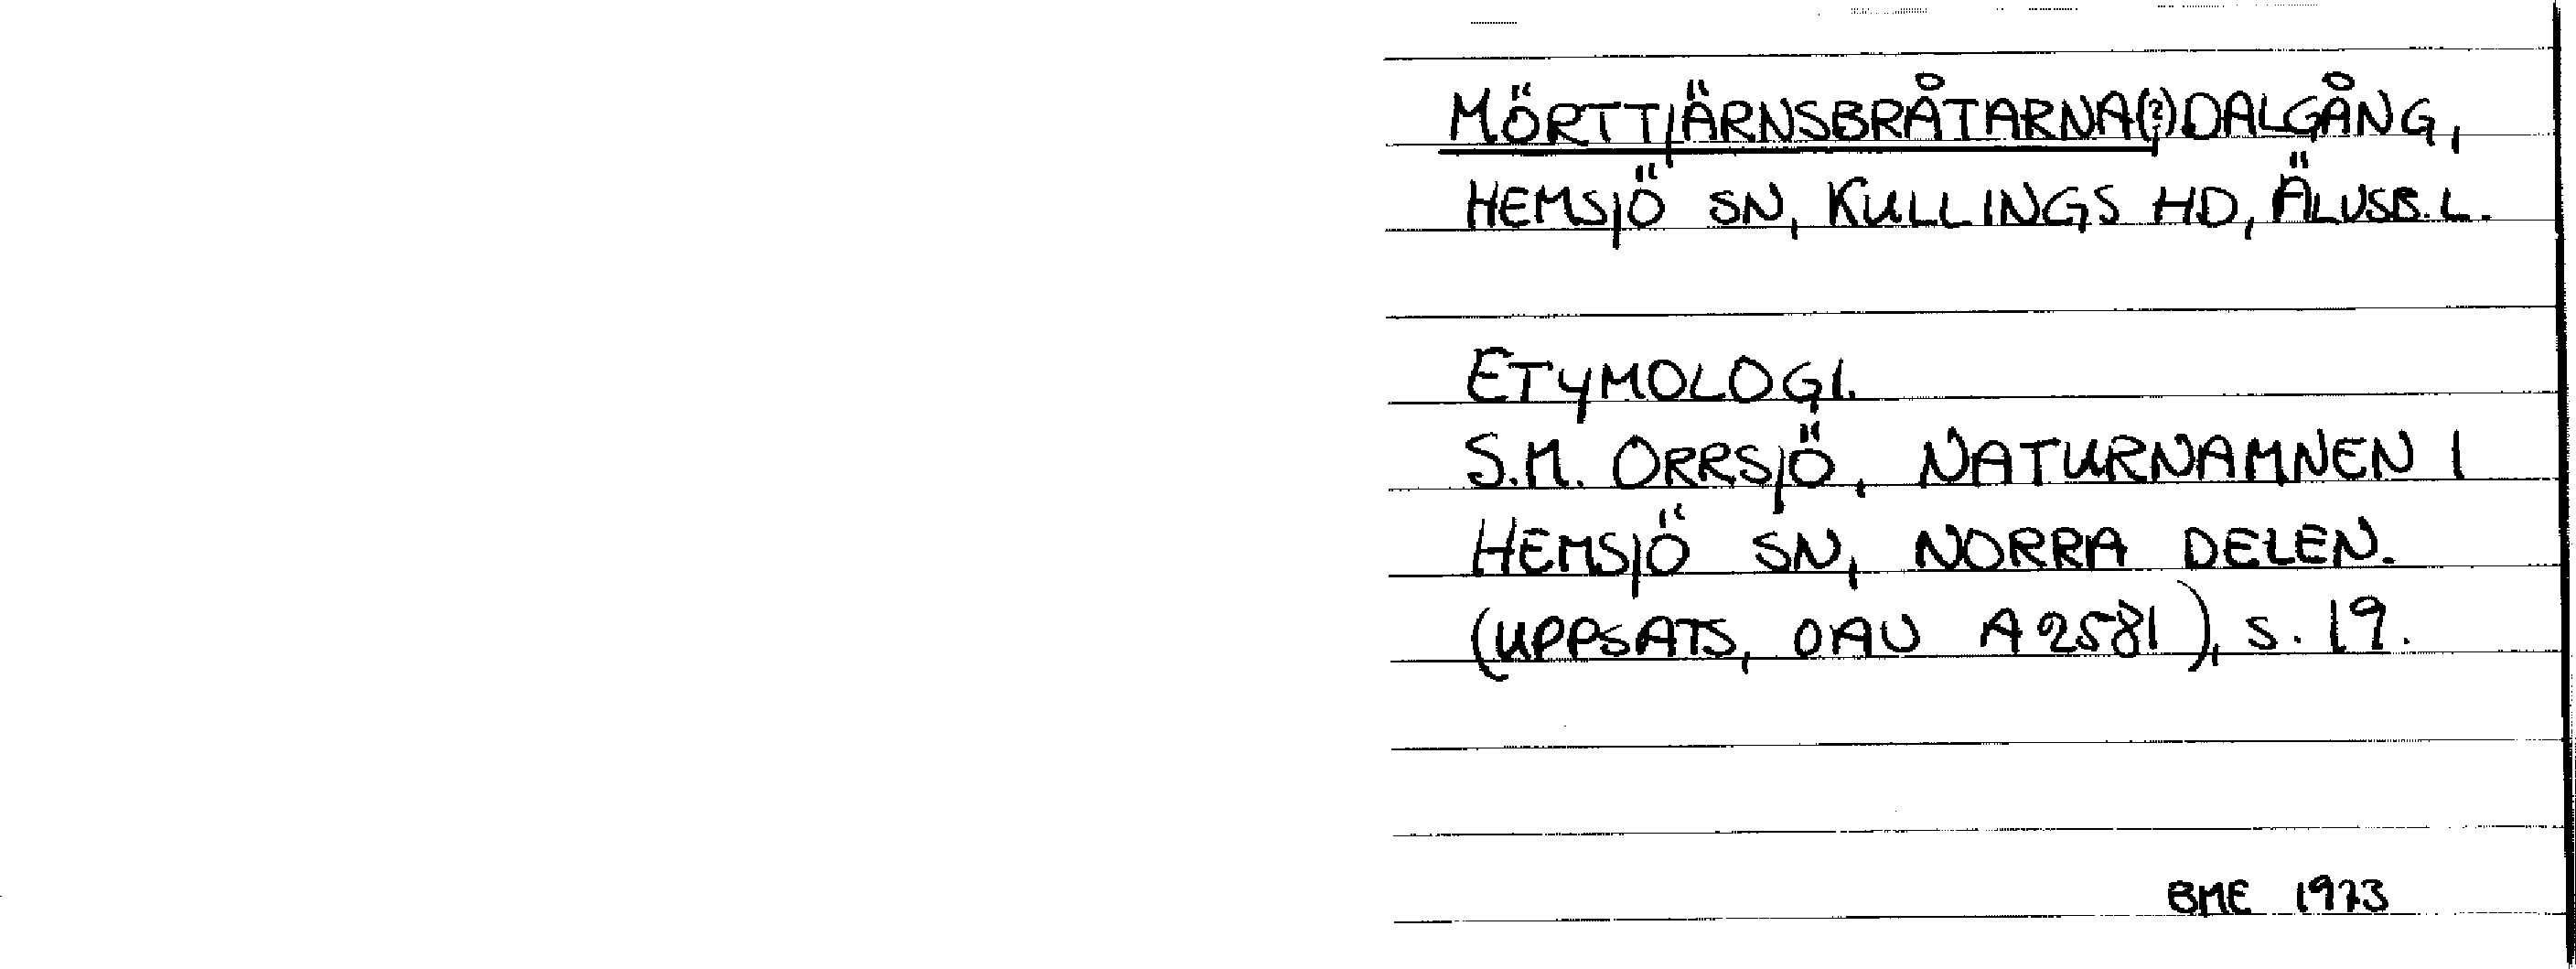 MÖRTTJÄRNSBRÅTARNA(?), DALGÅNG,
HEMSJÖ SN, KULLINGS HD, ÄLVSB. L.
ETYMOLOGI.
S.M. ORRSJÖ, NATURNAMNEN I
HEMSJÖ SN, NORRA DELEN.
(UPPSATS, OAU A 2581), S. 19.
BME 1973